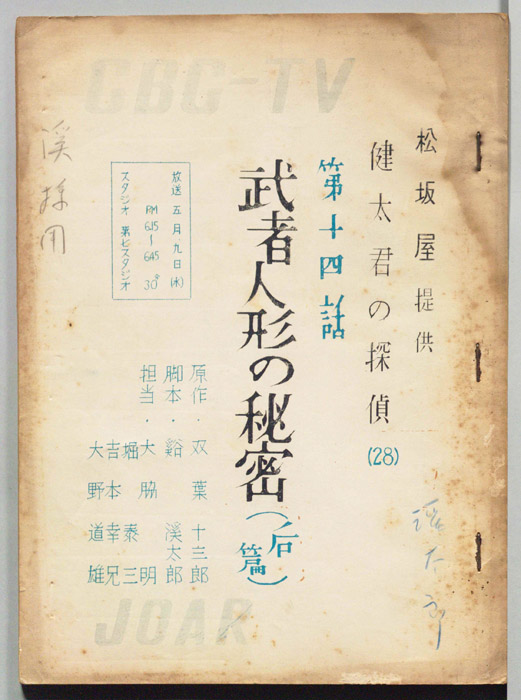 CBC-TV
松坂屋提供
健太君の探偵(28)
第十四話
武者人形の秘密(后篇)
放送 五月九日(水)
PM 6.15〜6.45 30"
スタジオ 第七スタジオ
原作・双葉十三郎
脚本・谿 溪太郎
担当・大脇 明
堀 泰三
吉本幸兄
大野道雄
溪採用
JOAR